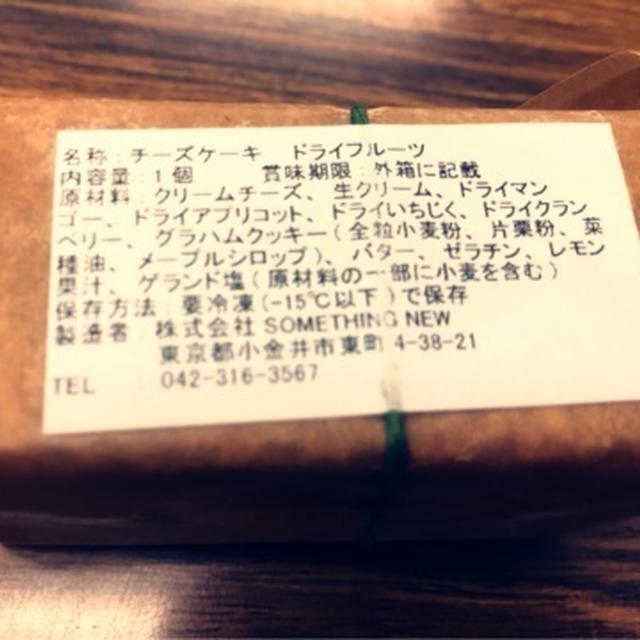 名称：チーズケーキ　ドライフルーツ
内容量：1個　　賞味期限：外箱に記載
原材料：クリームチーズ、生クリーム、ドライマン
ゴー、ドライアプリコット、ドライいちじく、ドライクラン
ベリー、グラハムクッキー(全粒小麦粉、片栗粉、菜
種油、メープルシロップ)、バター、ゼラチン、レモン
果汁、ゲランド塩(原材料の一部に小麦を含む)
保存方法：要冷凍(-15℃以下)で保存
製造者：株式会社 SOMETHING NEW
東京都小金井市東町 4-38-21
TEL　：042-316-3567